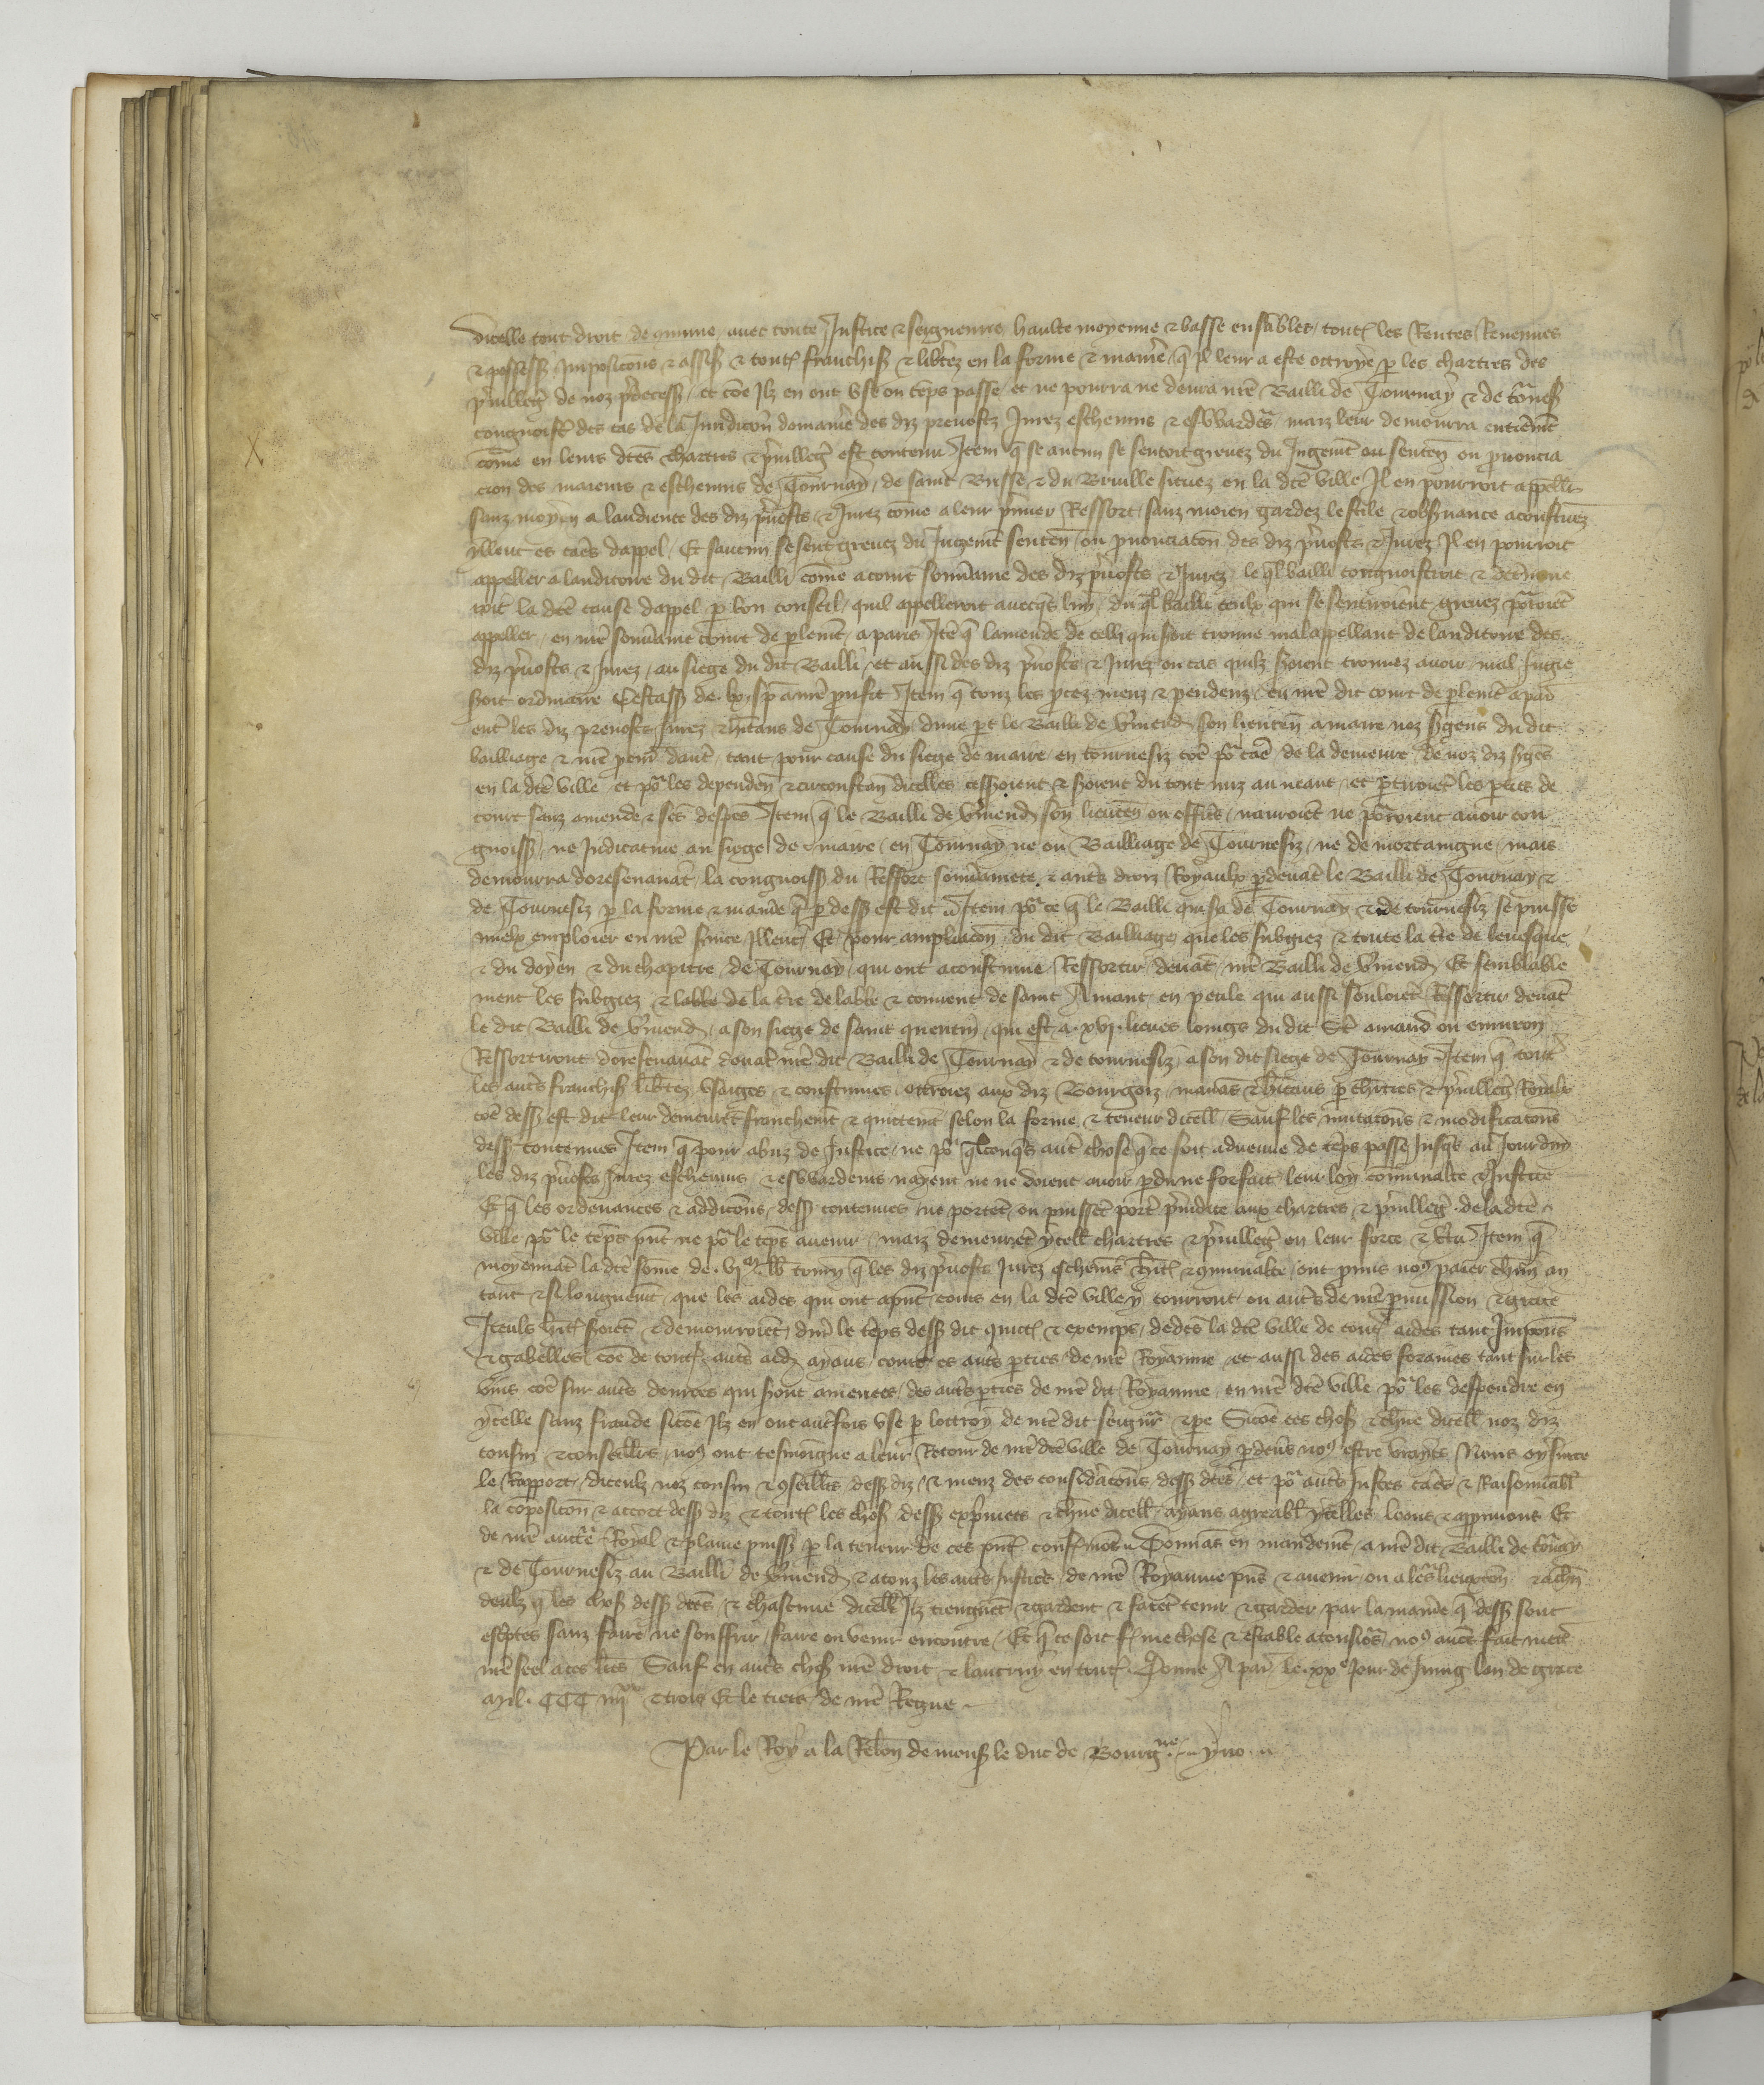 dicelle tout droit de commune avec toute Justice & seigneurie haulte moyenne & basse ensembles toutes les Rentes Revenues
& possess Imposicons & assis & toutes franchis & libtez en la forme & maniere q il leur a este ottroye p les chartres des
privilleg de noz predecess et coe Ilz en ont use ou temps passe et ne pourra ne devra nre Bailli de Tournay & de tournes
congnoistre des cas de la Juridicon domaniere des diz prevostz Jurez eschevins & eswardes maiz leur demourra entierement
come en leurs dces chartres & privilleg est contenu Item q se aucun se sentoit grevez du Jugemt ou senten ou pronuncia
cion des maieurs & eschevins de Tournay de saint Brisse & du Bruille situez en la dce ville Il en pourroit appell
sanz moyen a laudience des diz prevostz & Jurez come a leur premier Ressort sanz moien gardez le stile & observance acoustumez
illeuc es caes dappel Et saucun se sent grevez du Jugemt senten ou pronunciaton des diz prevosts & Jurez Il en pourroit
appeller a lauditoire du dit Bailli come a court souveraine des diz prevosts & Jurez le ql bailli congnoistroit & determine
roit la dce cause dappel p bon conseil quil appelleroit avecqs lui du ql bailli ceulx qui se sentiroient grevez porroient
appeller en nre souveraine court de plement a paris Ite q lamende de celli qui soit trouve mal appellant de lauditoire des
diz prevosts & Jurez au siege du dit Bailli et aussi des diz prevosts & Jurez ou cas quilz soient trouvez avoir mal Jugie
soit ordinaire cestass de lx s p a nre prufit Item q touz les proces menz & pendenz en nre dit court de plemt a paris
entre les diz prevosts Jurez & hitans de Tournay dune pt le Bailli de Vermend son lieuten a maire noz sergens du dit
bailliage & nre pcur dautre tant pour cause du siege de maire en tournesiz coe por cae de la demeure de noz diz sgens
en la dce ville et por les dependen & circonstan dicelles cesseroient & seroient du tout miz au neant et ptiroient les pties de
court sanz amende & ses despes Item q le Bailli de Vermend son lieuten ou officrs nauroient ne porroient avoir con
gnoiss ne Judicature au siege de maire en Tournay ne ou Bailliage de Tournesiz ne de mortaingne mais
demourra doresenavat la congnoiss du Ressort souverainete & autres droiz Royaulx pdevat le Bailli de Tournay &
de Tournesiz p la forme & maniere q p dess est dit Item por ce q le Bailli qui sa de Tournay & de tournesiz se puisse
mielx emploier en nre svice illeuc Et pour ampliacon du dit Bailliage que les subgiez & toute la tre de levesque
& du doyen & du chapitre de Tournay qui ont acoustume Ressortir devat nre Bailli de Vermend Et semblable
ment les subgiez & labbe de la tre de labbe & couvent de saint Amant en peule qui aussi souloiet Ressortir devat
le dit Bailli de Vermend a son siege de saint quentin qui est a xvi lieues loings du dit St amand ou environ
Ressortiront doresenavat devat nre dit Bailli de Tournay & de tournesiz a son dit siege de Tournay Item q toutes
les autres franchis libtez usaiges & coustumes ottroiez aux diz Bourgois manas & hitans p chrtres & privilleg Royalx
coe dess est dit leur demeuret franchemt & quittemt selon la forme & teneur dicell Sauf les mutatons & modificatons
dess contenues Item q pour abuz de Justice ne por qlconqs autre chose q ce soit advenue de teps passe Jusqs au Jourduy
les diz prevosts Jurez eschevins & eswardeurs nayent ne ne doient avoir pdu ne forfait leur loy comunalte & Justice
Et q les ordenances & addicons dess contenues ne portet ou puisset porter preiudice aux chartres & privilleg de la dce
ville por le teps pnt ne por le teps avenir maiz demeuret ycell chartres & privilleg en leur force & vtu Item q
moyennat la dce some de vi m lb tourn q les diz prevosts Jurez eschevins hit & comunalte ont promis nous paier chun an
tant & si longuemt que les aides qui ont apnt cours en la dce ville y courront ou autres de nre pmission & grace
Iceuls hit soiet & demourroiet dur le teps dess dit quict & exemps dedes la dce ville de tout aides tant Impoons
& gabelles coe de tout autres aid ayans cours es autres pties de nre Royaume et aussi des aides foraines tant sur les
vins coe sur autres denrees qui sont amenees des autres pties de nre dit Royaume en nre dce ville por les despendre en
ycelle sanz fraude sicoe Ilz en ont autrefois use p lottroy de nre dit seignr & pe Sicoe ces chos & chune dicell noz diz
cousin & conseillrs nous ont tesmoingne a leur Retour de nre dce ville de Tournay pdevs nous estre vraies Nous oy sur ce
le Rapport diceulz noz cousin & conseillrs dess diz & meuz des consideratons dess dces et por autres Justes caes & Raisonnabl
la composicon & accort dess diz & tout les chos dess exprimees & chune dicell ayans agreabl ycelles loons & approuvons Et
de nre auctorite Royal & plaine puiss p la teneur de ces pnt confirmons Donnas en mandemt a nre dit Bailli de tournay
& de Tournesiz au Bailli de Vermend & a touz les autres Justices de nre Royaume pns & avenir ou a leurs lieuxten & a chun
deulz q les chos dess dces & chascune dicell Ilz tiengnet & gardent & facet tenir & garder par la maniere q dess sont
escriptes sanz faire ne souffrir faire ou venir encontre Et q ce soit ferme chose & estable a tousiors nous avos fait mettre
nre seel a ces lres Sauf en autres chos nre droit & lautruy en tout Donne A paris le xx e Jour de Juing lan de grace
Mil CCC iiii xx & trois Et le tiers de nre Regne
Par le Roy a la Relon de mons le duc de Bourgne yvo